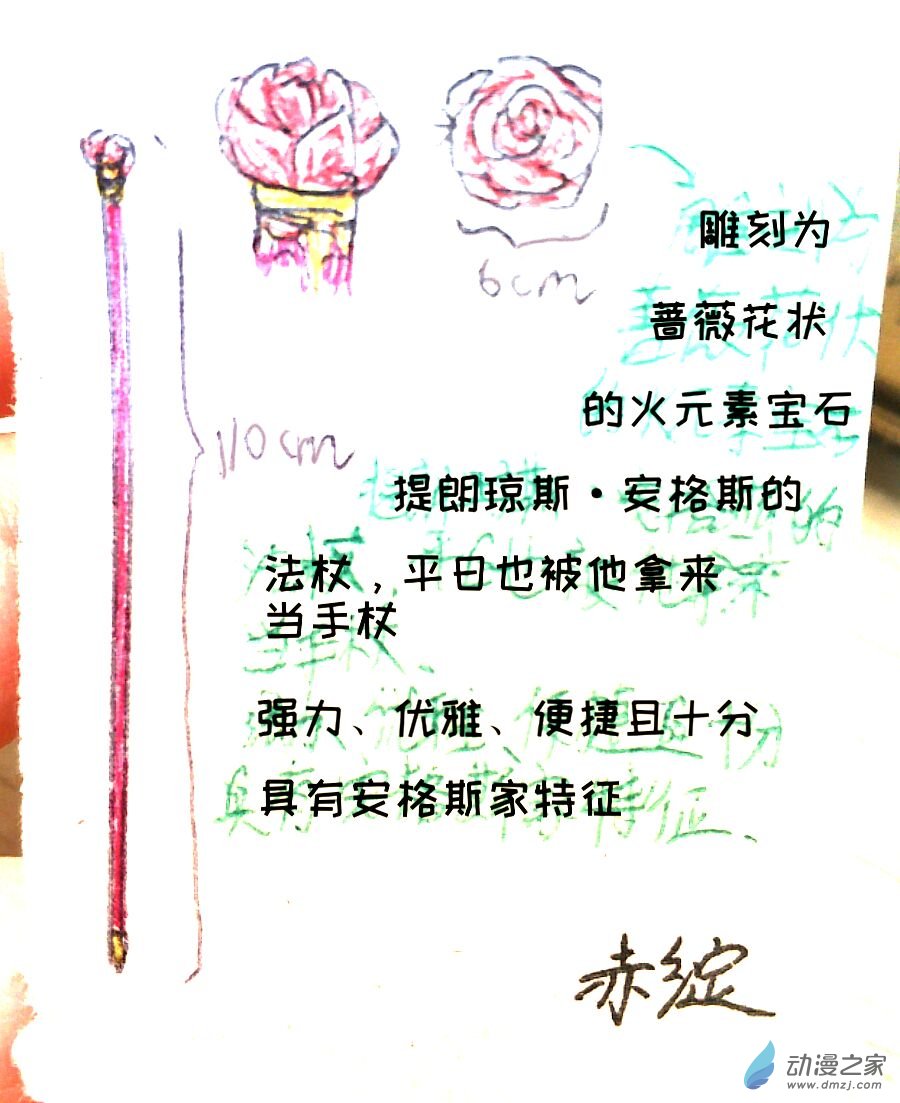 6cm
雕刻为
蔷薇花状
的火元素宝石
110cm
提朗琼斯·安格斯的
法杖，平日也被他拿来
当手杖
强力、优雅、便捷且十分
具有安格斯家特征
赤绽
动漫之家
www.dmzj.com